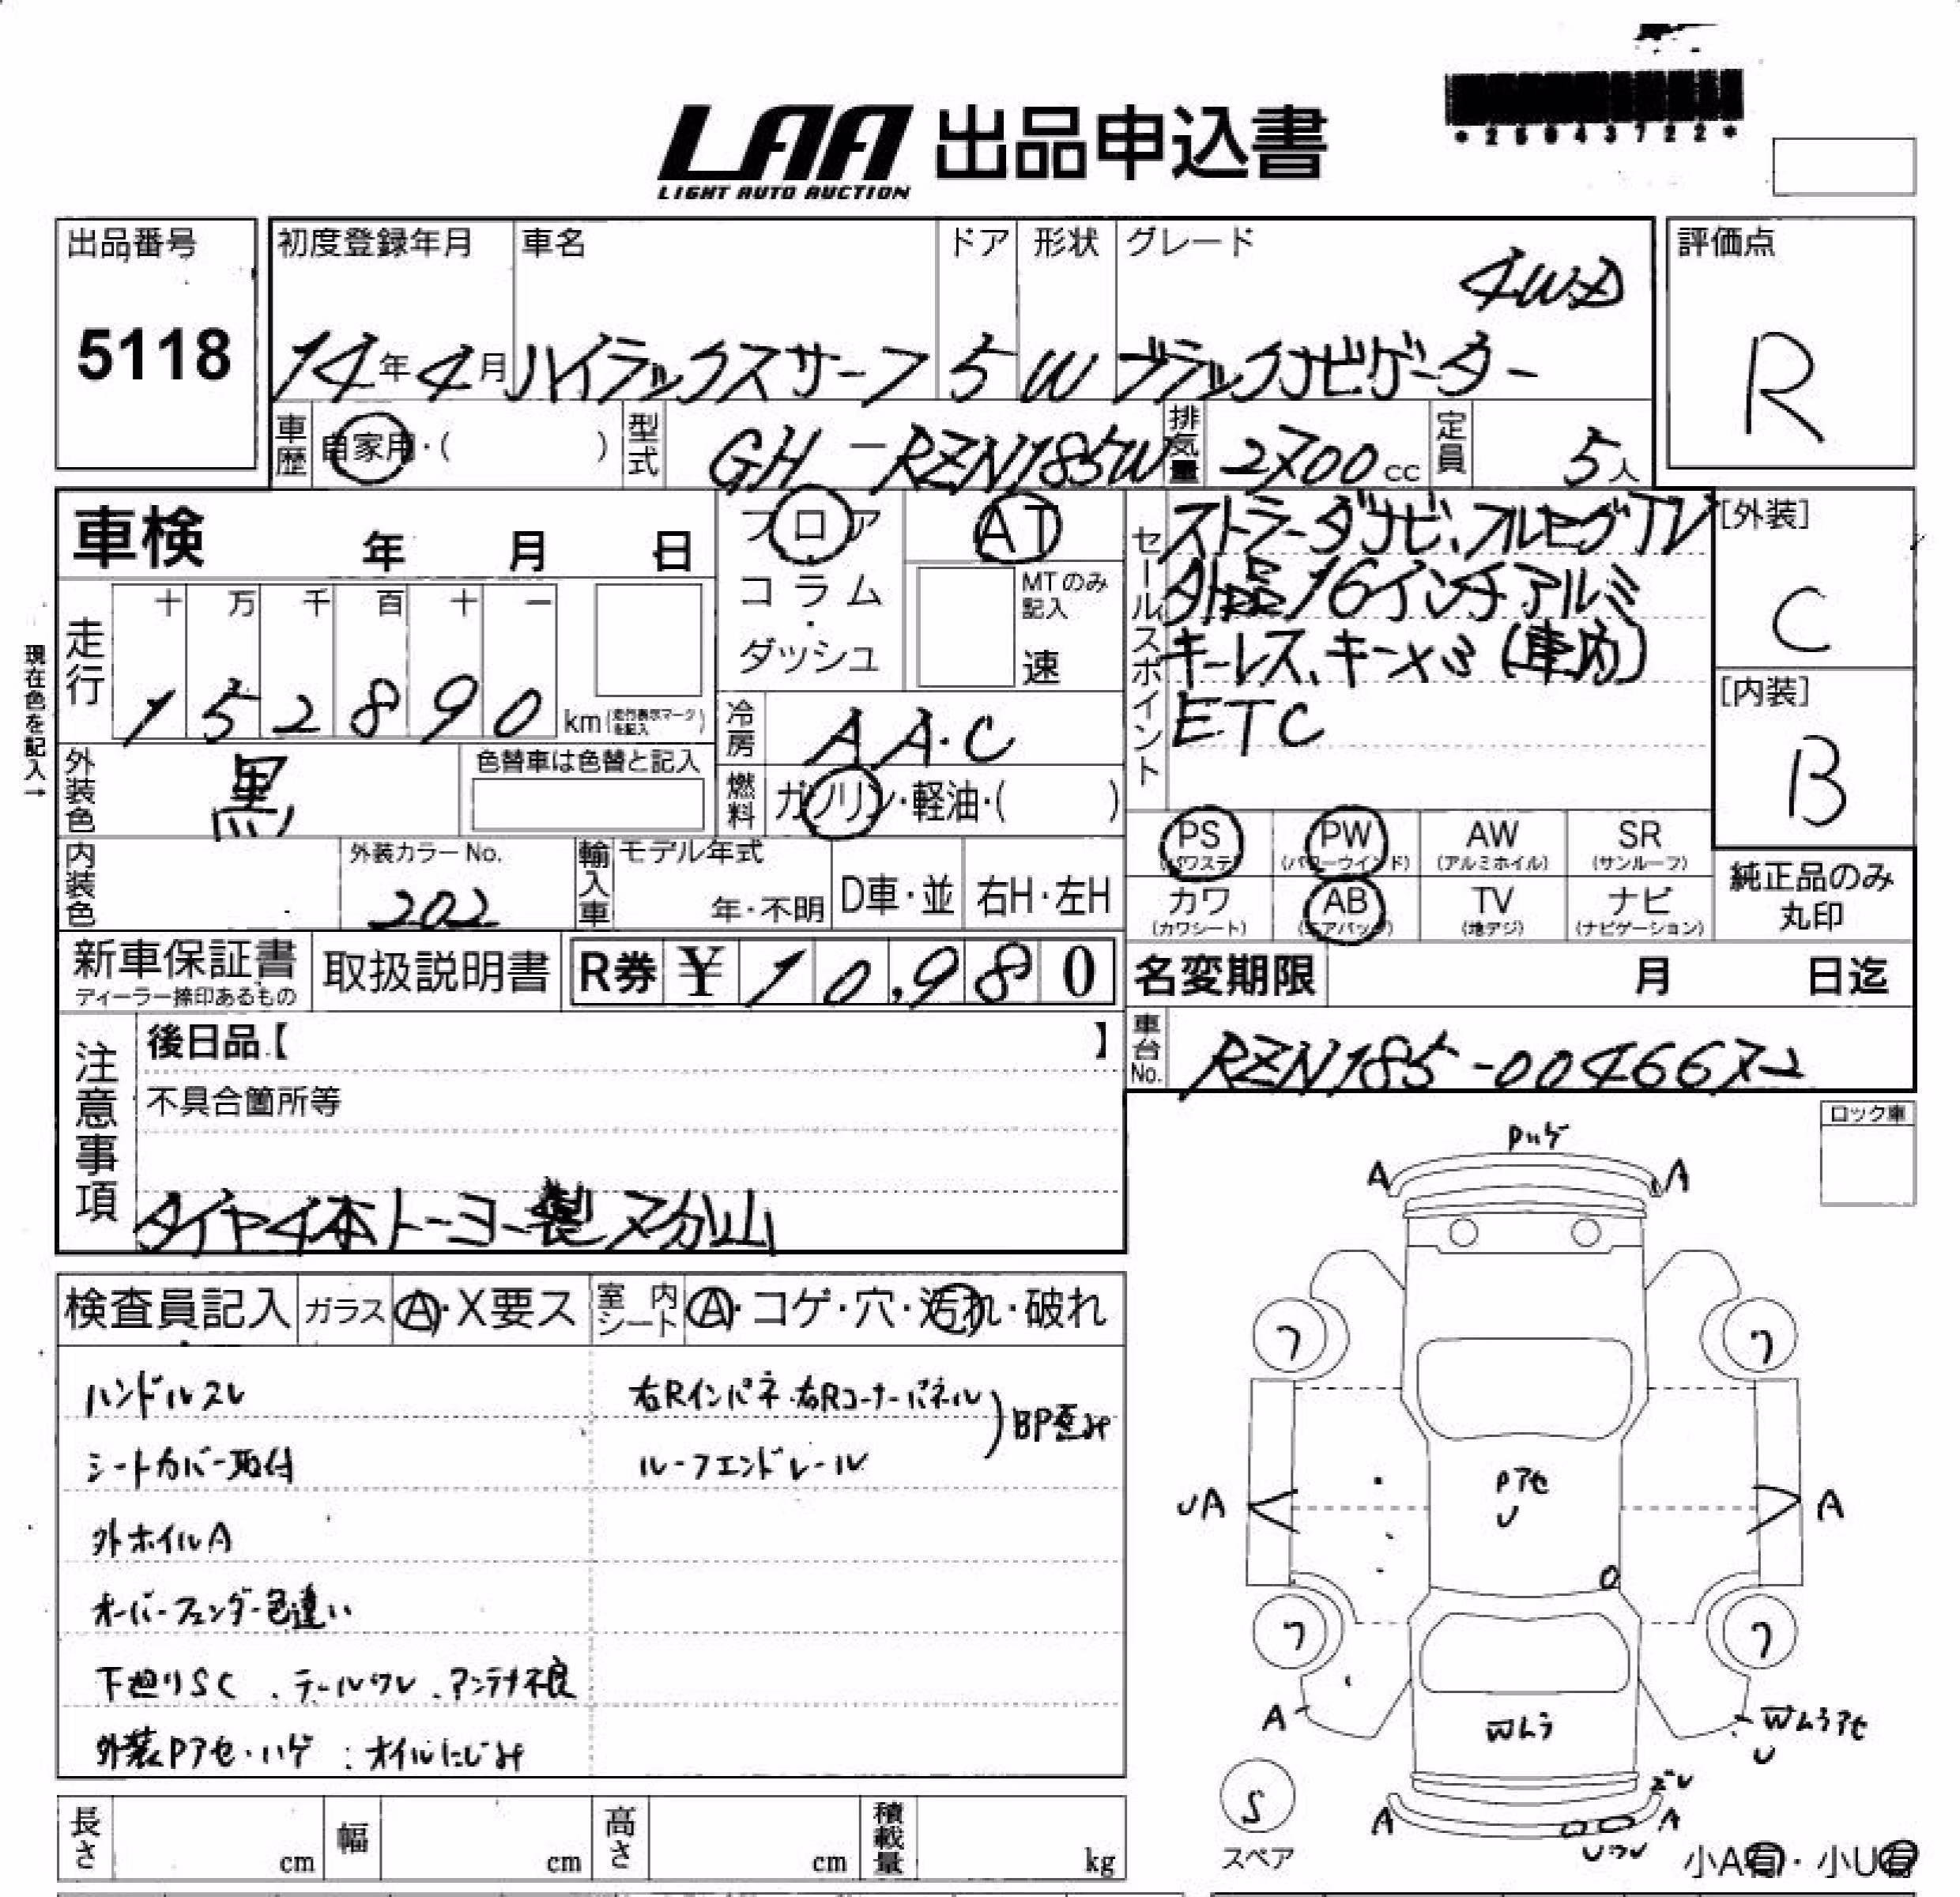 *25043722*
LAA 出品申込書
LIGHT AUTO AUCTION
出品番号
5118
初度登録年月 車名 ドア 形状 グレード
4WD
14年4月 ハイラックスサーフ 5 W ブラックナビゲーター
評価点
R
車歴 自家用・( ) 型式 GH-RZN185W 排気量 2700cc 定員 5人
車検 年 月 日
フロア AT
コラム・
ダッシュ
MTのみ
記入
速
セールスポイント
ストラーダナビ、フルセグTV
外品16インチアルミ
キーレス、キーメミ(車内)
ETC
[外装]
C
[内装]
B
現在色を記入→
走行 十 万 千 百 十 一
1 5 2 8 9 0 km (走行表示マークを記入)
冷房 AA・C
燃料 ガソリン・軽油・( )
外装色 黒 色替車は色替と記入
内装色 外装カラーNo. 202
輸入車 モデル年式 年・不明 D車・並 右H・左H
PS (パワステ) PW (パワーウインド) AW (アルミホイル) SR (サンルーフ)
カワ (カワシート) AB (エアバック) TV (地デジ) ナビ (ナビゲーション)
純正品のみ
丸印
新車保証書
ディーラー捺印あるもの
取扱説明書 R券 ¥ 10,980
名変期限 月 日迄
車台No. RZN185-0046672
注意事項
後日品【 】
不具合箇所等
タイヤ4本トーヨー製 7分山
ロック車
検査員記入 ガラス A・X要ス 室内シート A・コゲ・穴・汚れ・破れ
ハンドルスレ
シートカバー取付
外ホイルA
オーバーフェンダー色違い
下廻りSC、テールワレ、アンテナ不良
外装Pアセ・ハゲ : オイルにじみ
右Rインパネ・右Rコーナーパネル
ルーフエンドレール
BP歪み
Pハゲ
A A
フ フ
Pアセ
U
UA A
フ フ
A
Wムラ
Wムラアセ
U
ズレ
A A
Uワレ
S
スペア
小A有・小U有
長さ cm 幅 cm 高さ cm 積載量 kg